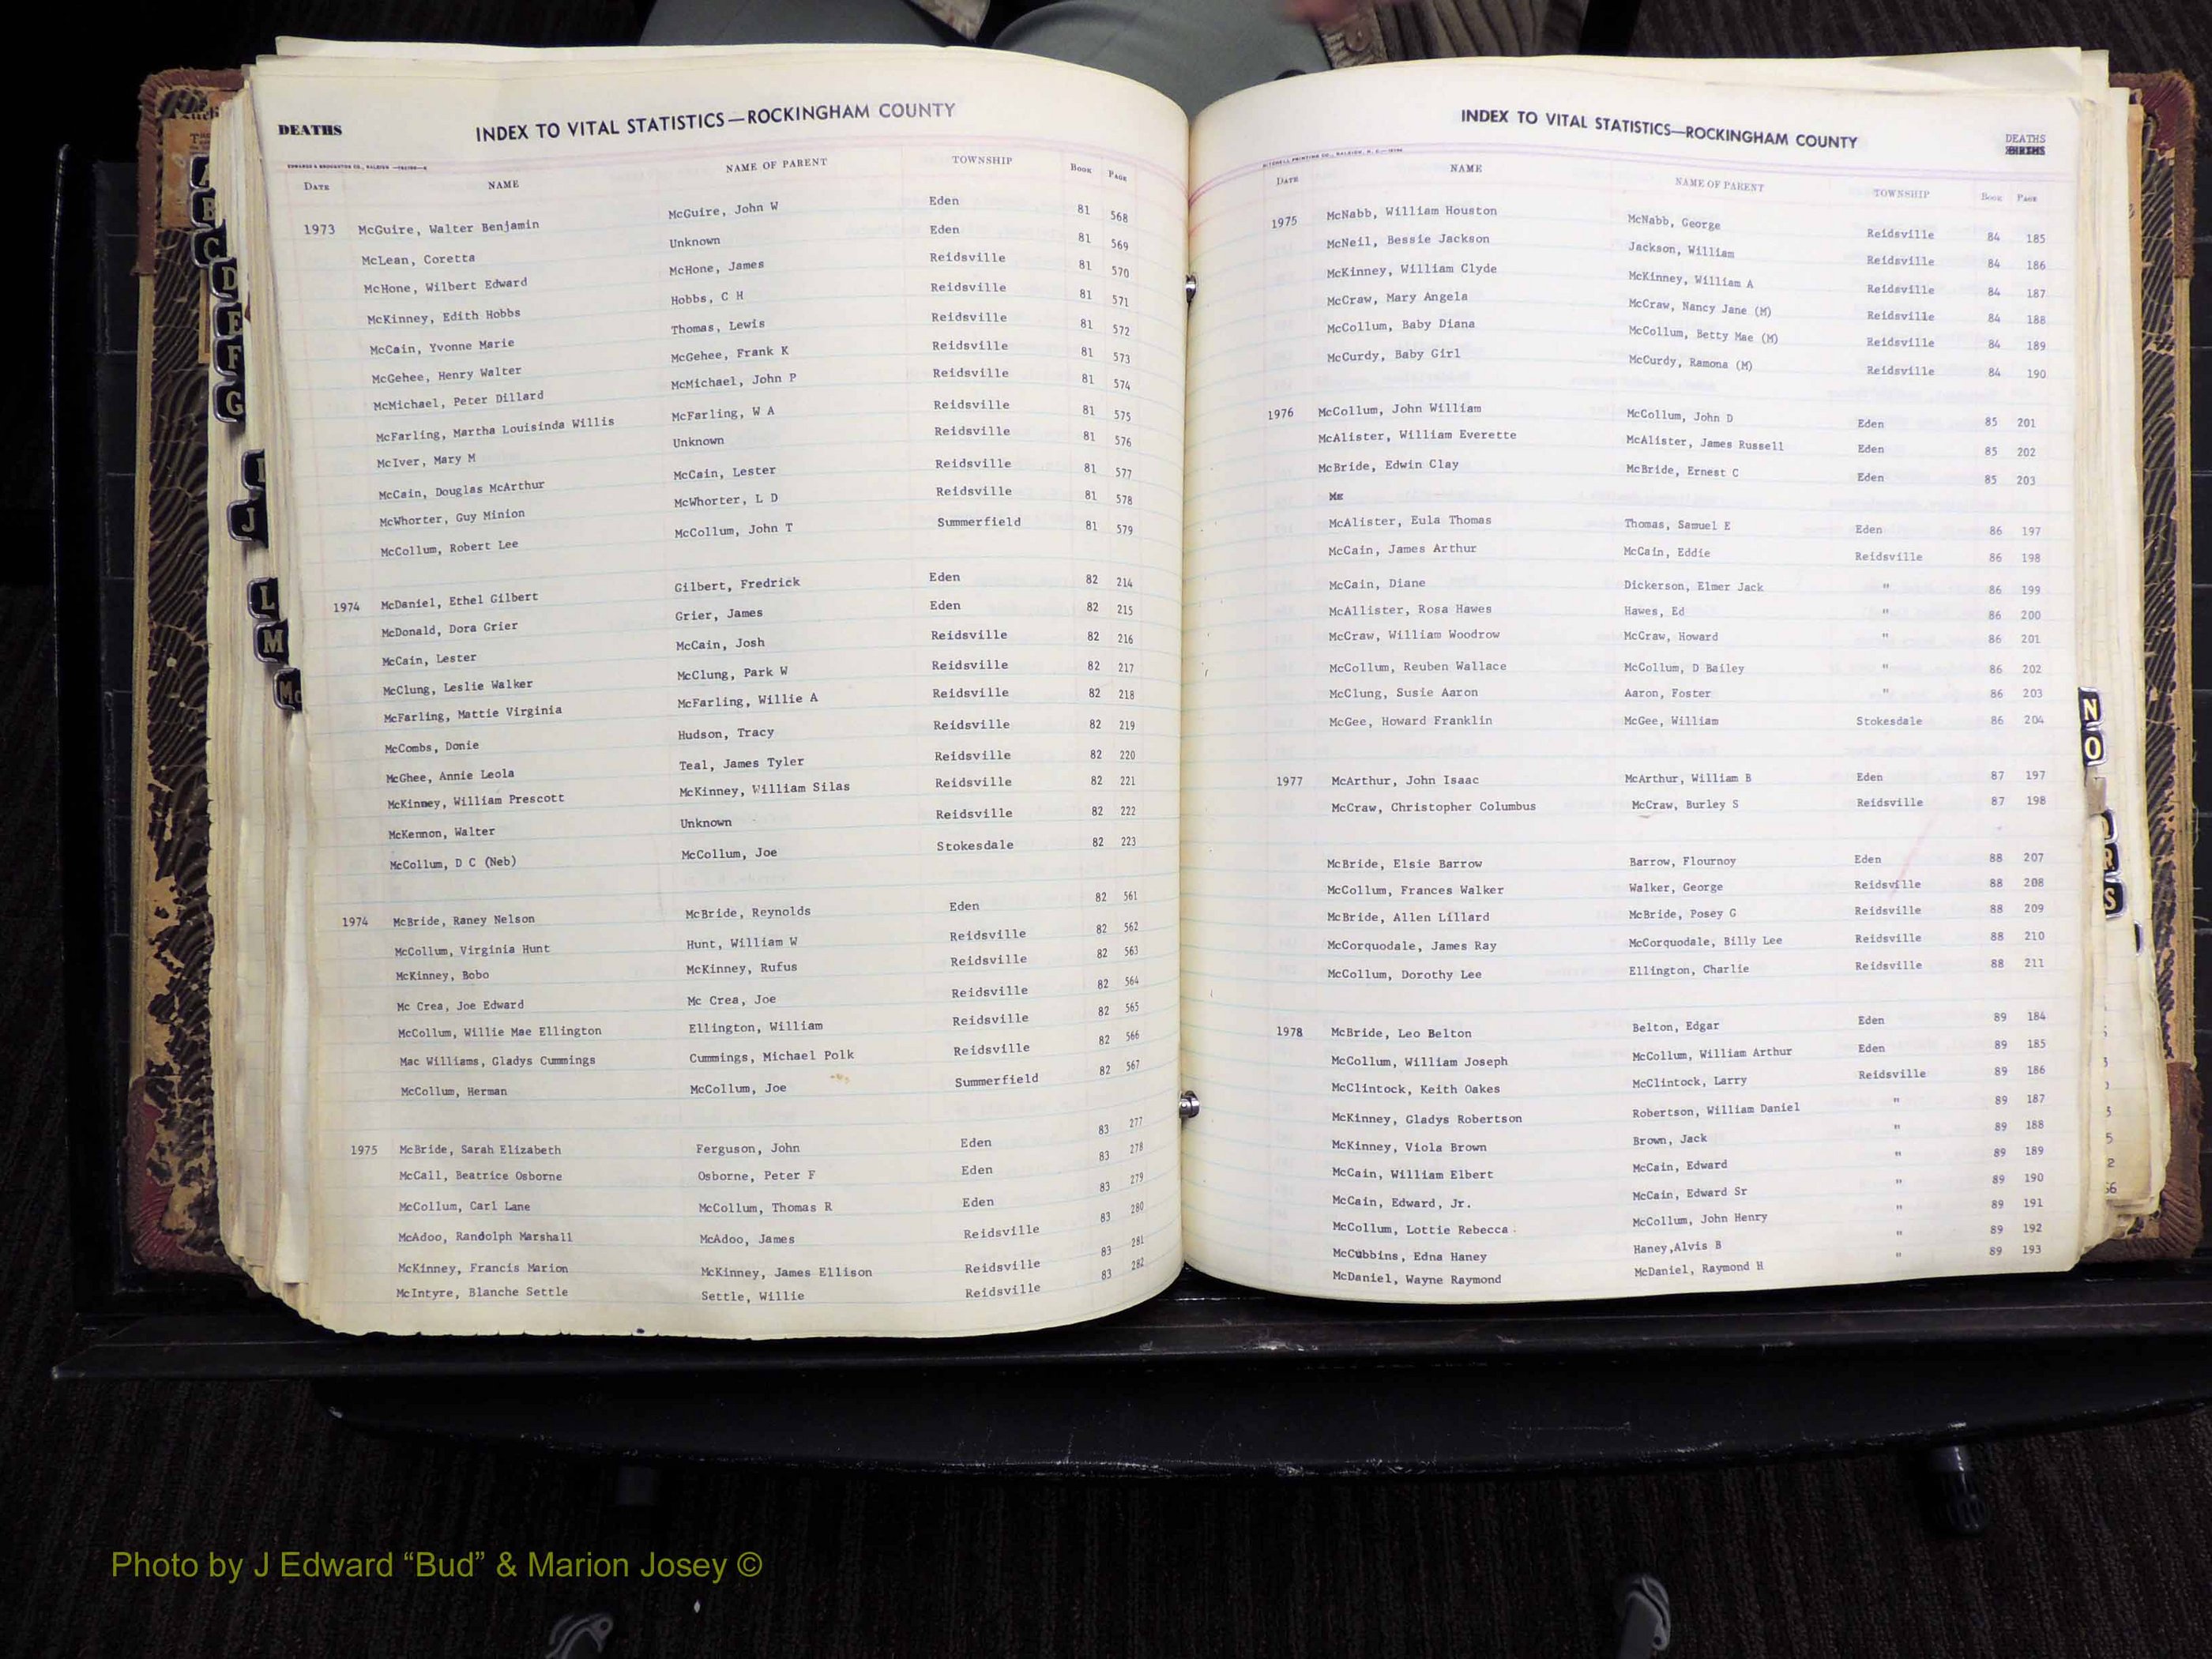 DEATHS
INDEX TO VITAL STATISTICS—ROCKINGHAM COUNTY
DATE NAME NAME OF PARENT TOWNSHIP BOOK PAGE
1973 McGuire, Walter Benjamin McGuire, John W Eden 81 568
McLean, Coretta Unknown Eden 81 569
McHone, Wilbert Edward McHone, James Reidsville 81 570
McKinney, Edith Hobbs Hobbs, C H Reidsville 81 571
McCain, Yvonne Marie Thomas, Lewis Reidsville 81 572
McGehee, Henry Walter McGehee, Frank K Reidsville 81 573
McMichael, Peter Dillard McMichael, John P Reidsville 81 574
McFarling, Martha Louisinda Willis McFarling, W A Reidsville 81 575
McIver, Mary M Unknown Reidsville 81 576
McCain, Douglas McArthur McCain, Lester Reidsville 81 577
McWhorter, Guy Minion McWhorter, L D Reidsville 81 578
McCollum, Robert Lee McCollum, John T Summerfield 81 579
1974 McDaniel, Ethel Gilbert Gilbert, Fredrick Eden 82 214
McDonald, Dora Grier Grier, James Eden 82 215
McCain, Lester McCain, Josh Reidsville 82 216
McClung, Leslie Walker McClung, Park W Reidsville 82 217
McFarling, Mattie Virginia McFarling, Willie A Reidsville 82 218
McCombs, Donie Hudson, Tracy Reidsville 82 219
McGhee, Annie Leola Teal, James Tyler Reidsville 82 220
McKinney, William Prescott McKinney, William Silas Reidsville 82 221
McKennon, Walter Unknown Reidsville 82 222
McCollum, D C (Neb) McCollum, Joe Stokesdale 82 223
1974 McBride, Raney Nelson McBride, Reynolds Eden 82 561
McCollum, Virginia Hunt Hunt, William W Reidsville 82 562
McKinney, Bobo McKinney, Rufus Reidsville 82 563
Mc Crea, Joe Edward Mc Crea, Joe Reidsville 82 564
McCollum, Willie Mae Ellington Ellington, William Reidsville 82 565
Mac Williams, Gladys Cummings Cummings, Michael Polk Reidsville 82 566
McCollum, Herman McCollum, Joe Summerfield 82 567
1975 McBride, Sarah Elizabeth Ferguson, John Eden 83 277
McCall, Beatrice Osborne Osborne, Peter F Eden 83 278
McCollum, Carl Lane McCollum, Thomas R Eden 83 279
McAdoo, Randolph Marshall McAdoo, James Reidsville 83 280
McKinney, Francis Marion McKinney, James Ellison Reidsville 83 281
McIntyre, Blanche Settle Settle, Willie Reidsville 83 282
INDEX TO VITAL STATISTICS—ROCKINGHAM COUNTY
DEATHS
BIRTHS
DATE NAME NAME OF PARENT TOWNSHIP BOOK PAGE
1975 McNabb, William Houston McNabb, George Reidsville 84 185
McNeil, Bessie Jackson Jackson, William Reidsville 84 186
McKinney, William Clyde McKinney, William A Reidsville 84 187
McCraw, Mary Angela McCraw, Nancy Jane (M) Reidsville 84 188
McCollum, Baby Diana McCollum, Betty Mae (M) Reidsville 84 189
McCurdy, Baby Girl McCurdy, Ramona (M) Reidsville 84 190
1976 McCollum, John William McCollum, John D Eden 85 201
McAlister, William Everette McAlister, James Russell Eden 85 202
McBride, Edwin Clay McBride, Ernest C Eden 85 203
McAlister, Eula Thomas Thomas, Samuel E Eden 86 197
McCain, James Arthur McCain, Eddie Reidsville 86 198
McCain, Diane Dickerson, Elmer Jack " 86 199
McAllister, Rosa Hawes Hawes, Ed " 86 200
McCraw, William Woodrow McCraw, Howard " 86 201
McCollum, Reuben Wallace McCollum, D Bailey " 86 202
McClung, Susie Aaron Aaron, Foster " 86 203
McGee, Howard Franklin McGee, William Stokesdale 86 204
1977 McArthur, John Isaac McArthur, William B Eden 87 197
McCraw, Christopher Columbus McCraw, Burley S Reidsville 87 198
McBride, Elsie Barrow Barrow, Flournoy Eden 88 207
McCollum, Frances Walker Walker, George Reidsville 88 208
McBride, Allen Lillard McBride, Posey G Reidsville 88 209
McCorquodale, James Ray McCorquodale, Billy Lee Reidsville 88 210
McCollum, Dorothy Lee Ellington, Charlie Reidsville 88 211
1978 McBride, Leo Belton Belton, Edgar Eden 89 184
McCollum, William Joseph McCollum, William Arthur Eden 89 185
McClintock, Keith Oakes McClintock, Larry Reidsville 89 186
McKinney, Gladys Robertson Robertson, William Daniel " 89 187
McKinney, Viola Brown Brown, Jack " 89 188
McCain, William Elbert McCain, Edward " 89 189
McCain, Edward, Jr. McCain, Edward Sr " 89 190
McCollum, Lottie Rebecca McCollum, John Henry " 89 191
McCubbins, Edna Haney Haney,Alvis B " 89 192
McDaniel, Wayne Raymond McDaniel, Raymond H " 89 193
B
C
D
E
F
G
I
J
L
M
Mc
N
O
R
S
Photo by J Edward “Bud” & Marion Josey ©